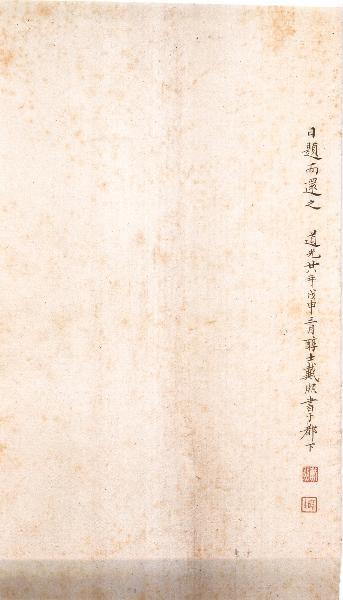 日題而還之 道光廿八年戊申三月醇士戴熙書于都下